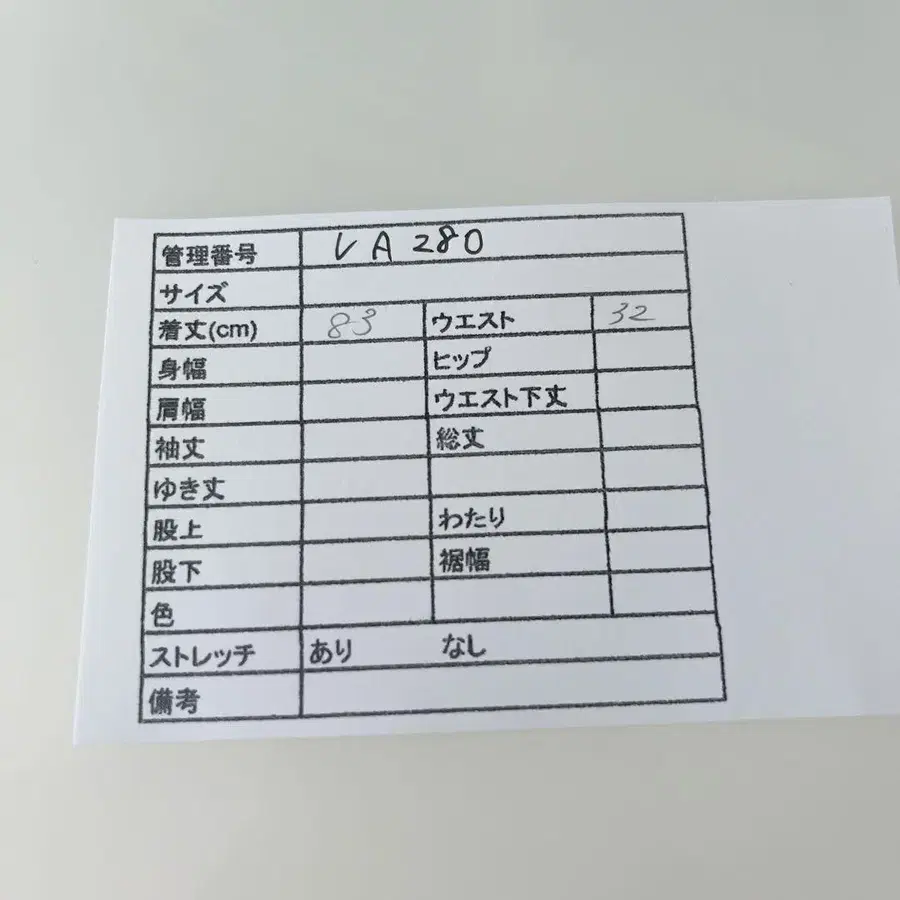 管理番号 VA280
サイズ
着丈(cm) 83 ウエスト 32
身幅 ヒップ
肩幅 ウエスト下丈
袖丈 総丈
ゆき丈
股上 わたり
股下 裾幅
色
ストレッチ あり なし
備考